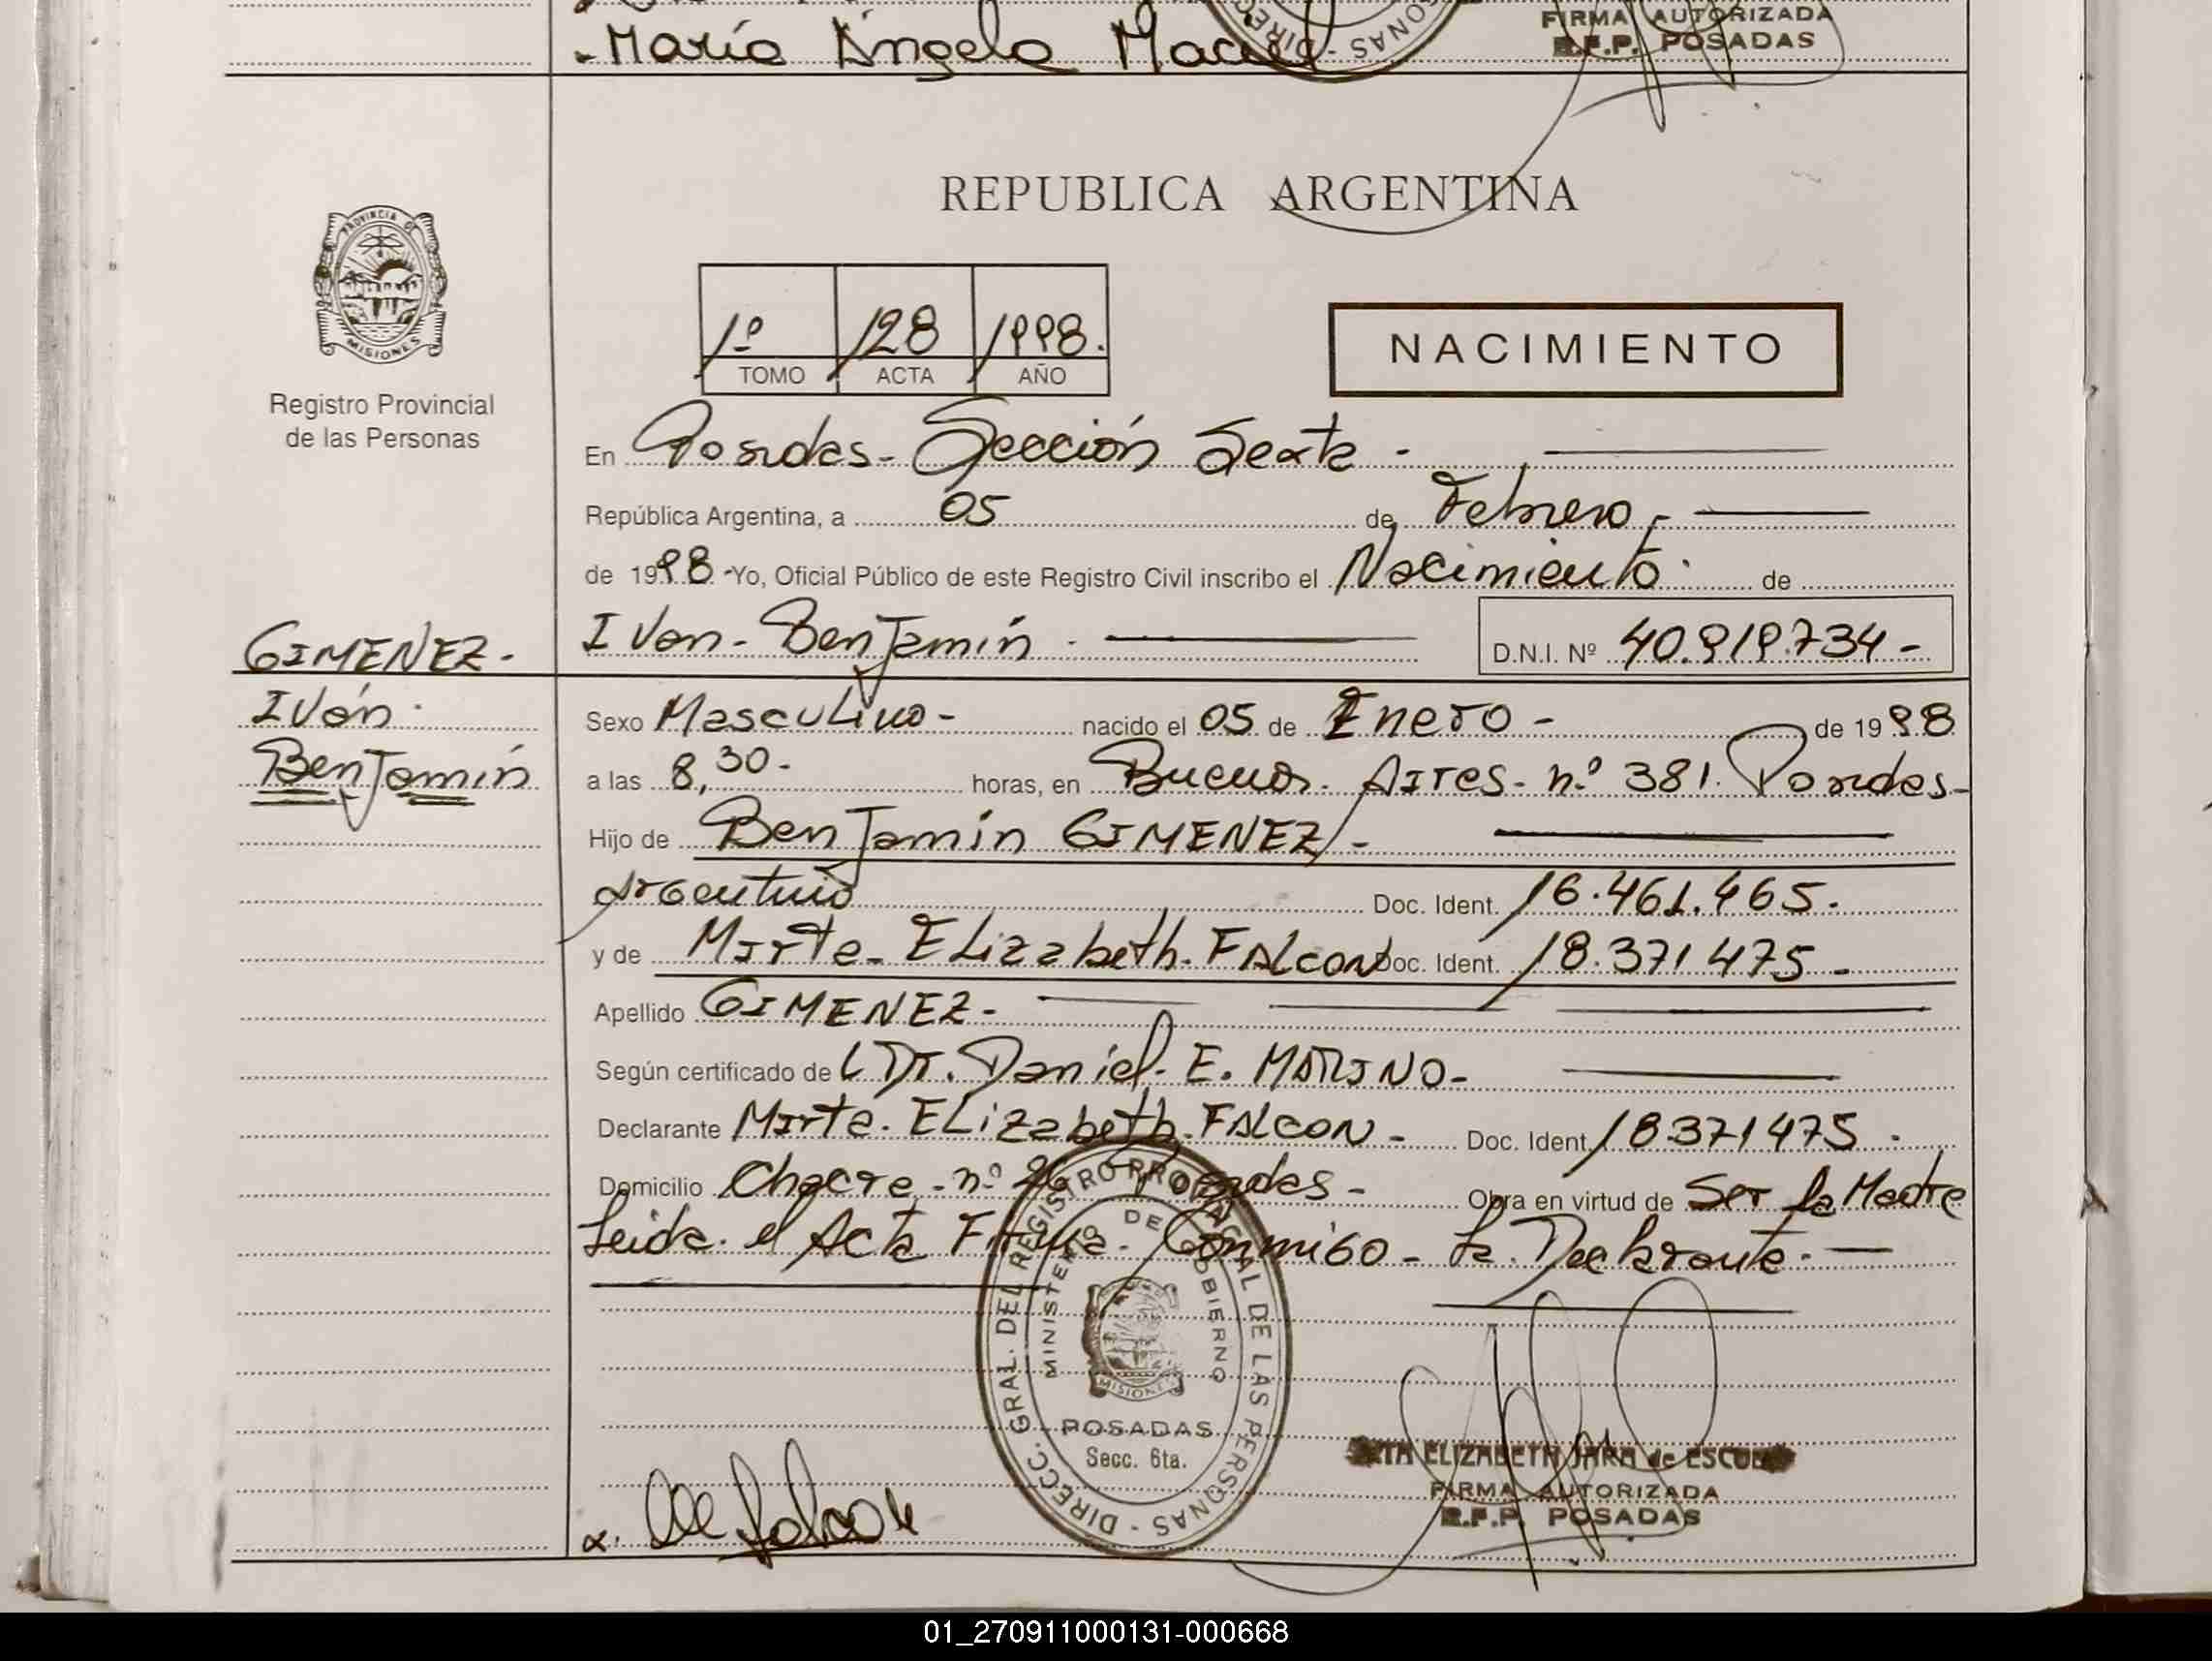 María Angela Maciel
FIRMA AUTORIZADA
R.P.P. POSADAS
REPUBLICA ARGENTINA
PROVINCIA DE MISIONES
Registro Provincial
de las Personas
1º 128 1998.
TOMO ACTA AÑO
NACIMIENTO
En Posadas - Sección Sexta -
República Argentina, a 05 de Febrero -
de 1998 - Yo, Oficial Público de este Registro Civil inscribo el Nacimiento de
GIMENEZ -
Iván
Benjamín
Ivan - Benjamín - D.N.I. Nº 40.919.734 -
Sexo Masculino - nacido el 05 de Enero - de 1998
a las 8,30 - horas, en Buenos Aires - n.º 381. Posadas -
Hijo de Benjamín GIMENEZ -
Argentino Doc. Ident. 16.461.465.
y de Mirta - Elizabeth - FALCON Doc. Ident. 18.371475 -
Apellido GIMENEZ -
Según certificado de Dr. Daniel - E. MARINO -
Declarante Mirta - Elizabeth - FALCON - Doc. Ident 18371475 -
Domicilio Chacra - nº Posadas - Obra en virtud de Ser la Madre
Leida el Acta Firma - Conmigo - la Declarante -
DIRECC. GRAL. DEL REGISTRO PROVINCIAL DE LAS PERSONAS -
MINISTERIO DE GOBIERNO
MISIONES
POSADAS
Secc. 6ta.
ELIZABETH JARA de
FIRMA AUTORIZADA
R.P.P. POSADAS
01_270911000131-000668